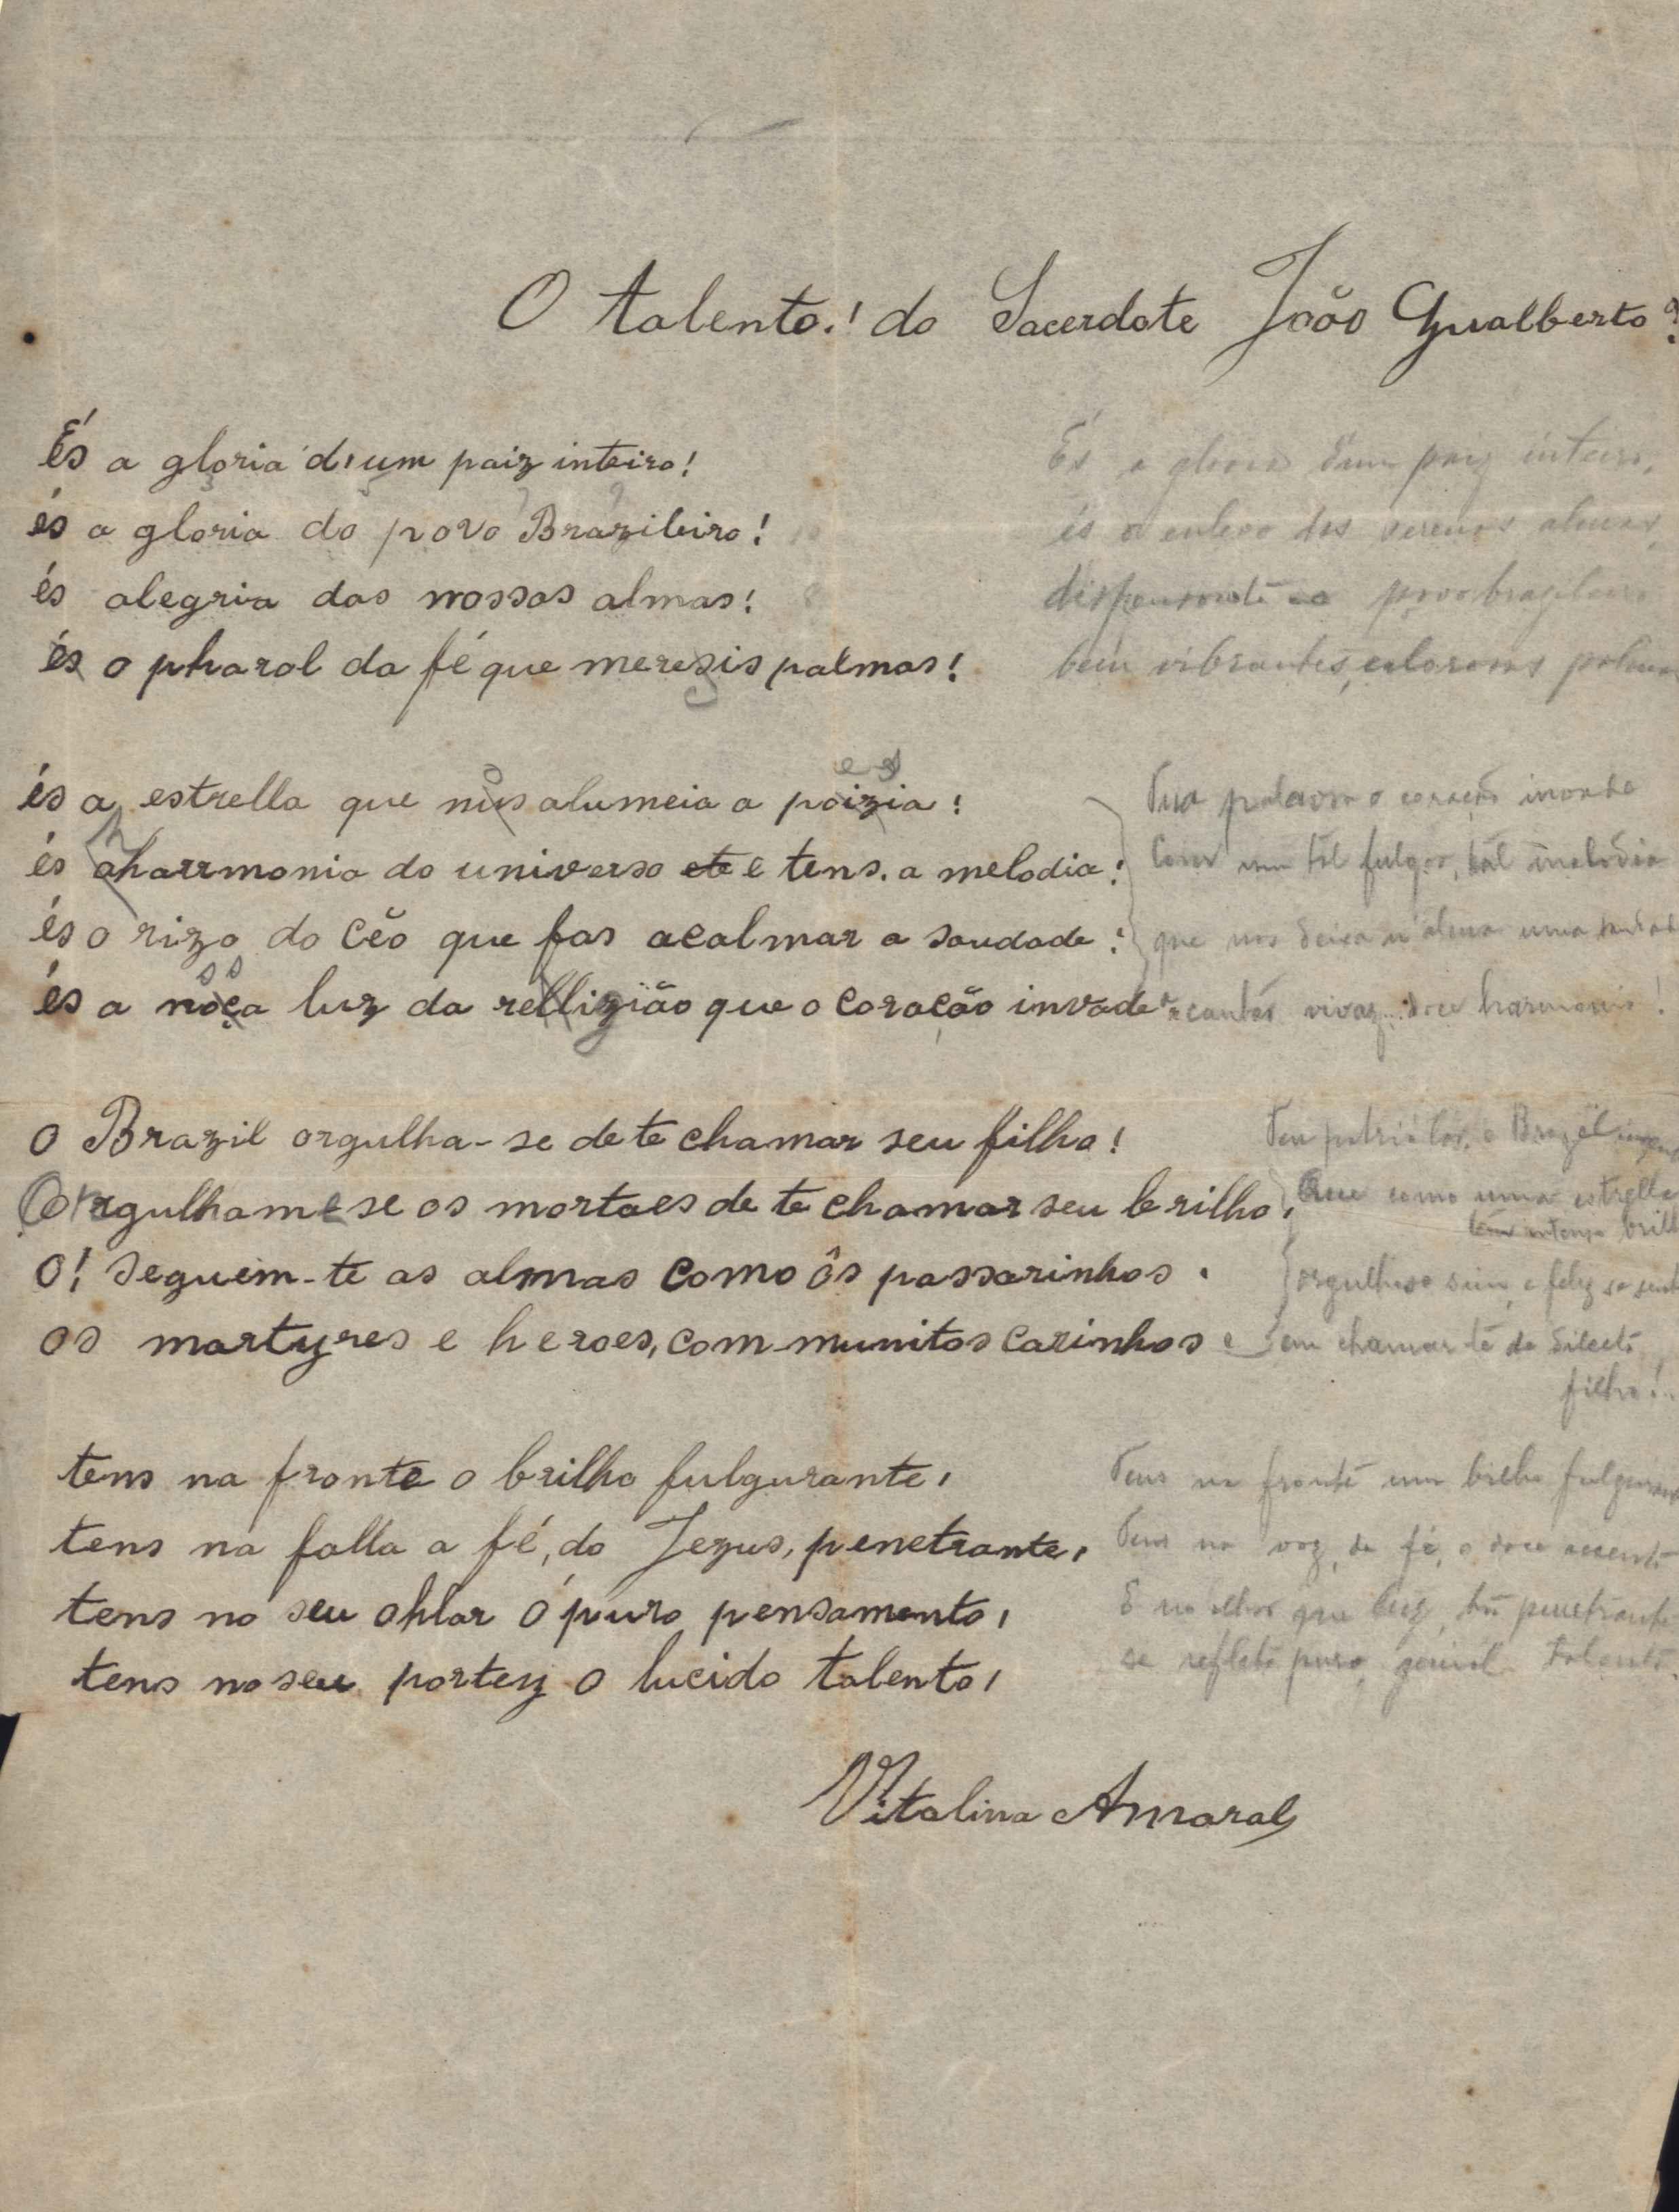 O talento.! do Sacerdote João Gualberto
És a gloria d'um paiz inteiro!
és a gloria do povo Brazileiro!
és alegria das nossas almas!
és o pharol da fé que meresis palmas!
és a estrella que nus alumeia a poizia!
és aharrmonia do universo ete e tens. a melodia!
és o rizo do Céo que fas acalmar a saudade!
és a noça luz da rellizião que o coração invade
O Brazil orgulha-se de te chamar seu filho!
Orgulhame se os mortaes de te chamar seu brilho,
O! Seguem-te as almas como ôs passarinhos.
os martyres e heroes, com munitos carinhos
tens na fronte o brilho fulgurante,
tens na falla a fé, do Jezus, penetrante,
tens no seu ohlar ó puro pensamento,
tens no seu portey o lucido talento,
Vitalina Amaral
És a gloria d'um paiz inteiro,
és o enlevo das almas
povo brazileiro
bem vibrantes, calorosas palmas
Tua palavra o coração invade
Com um tal fulgor, tal melodia
que nos deixa n'alma uma
vivaz doce harmonia!
Teu patrio lar, o Brazil
Que como uma estrella
tem intenso brilho
orgulhoso sim, e feliz se sente
em chamar-te de dilecto
filho!
Tens na fronte um brilho fulgurante
Tens na voz, da fé, o doce accento
E no olhar que luz, tão penetrante
se reflete puro, genial talento.